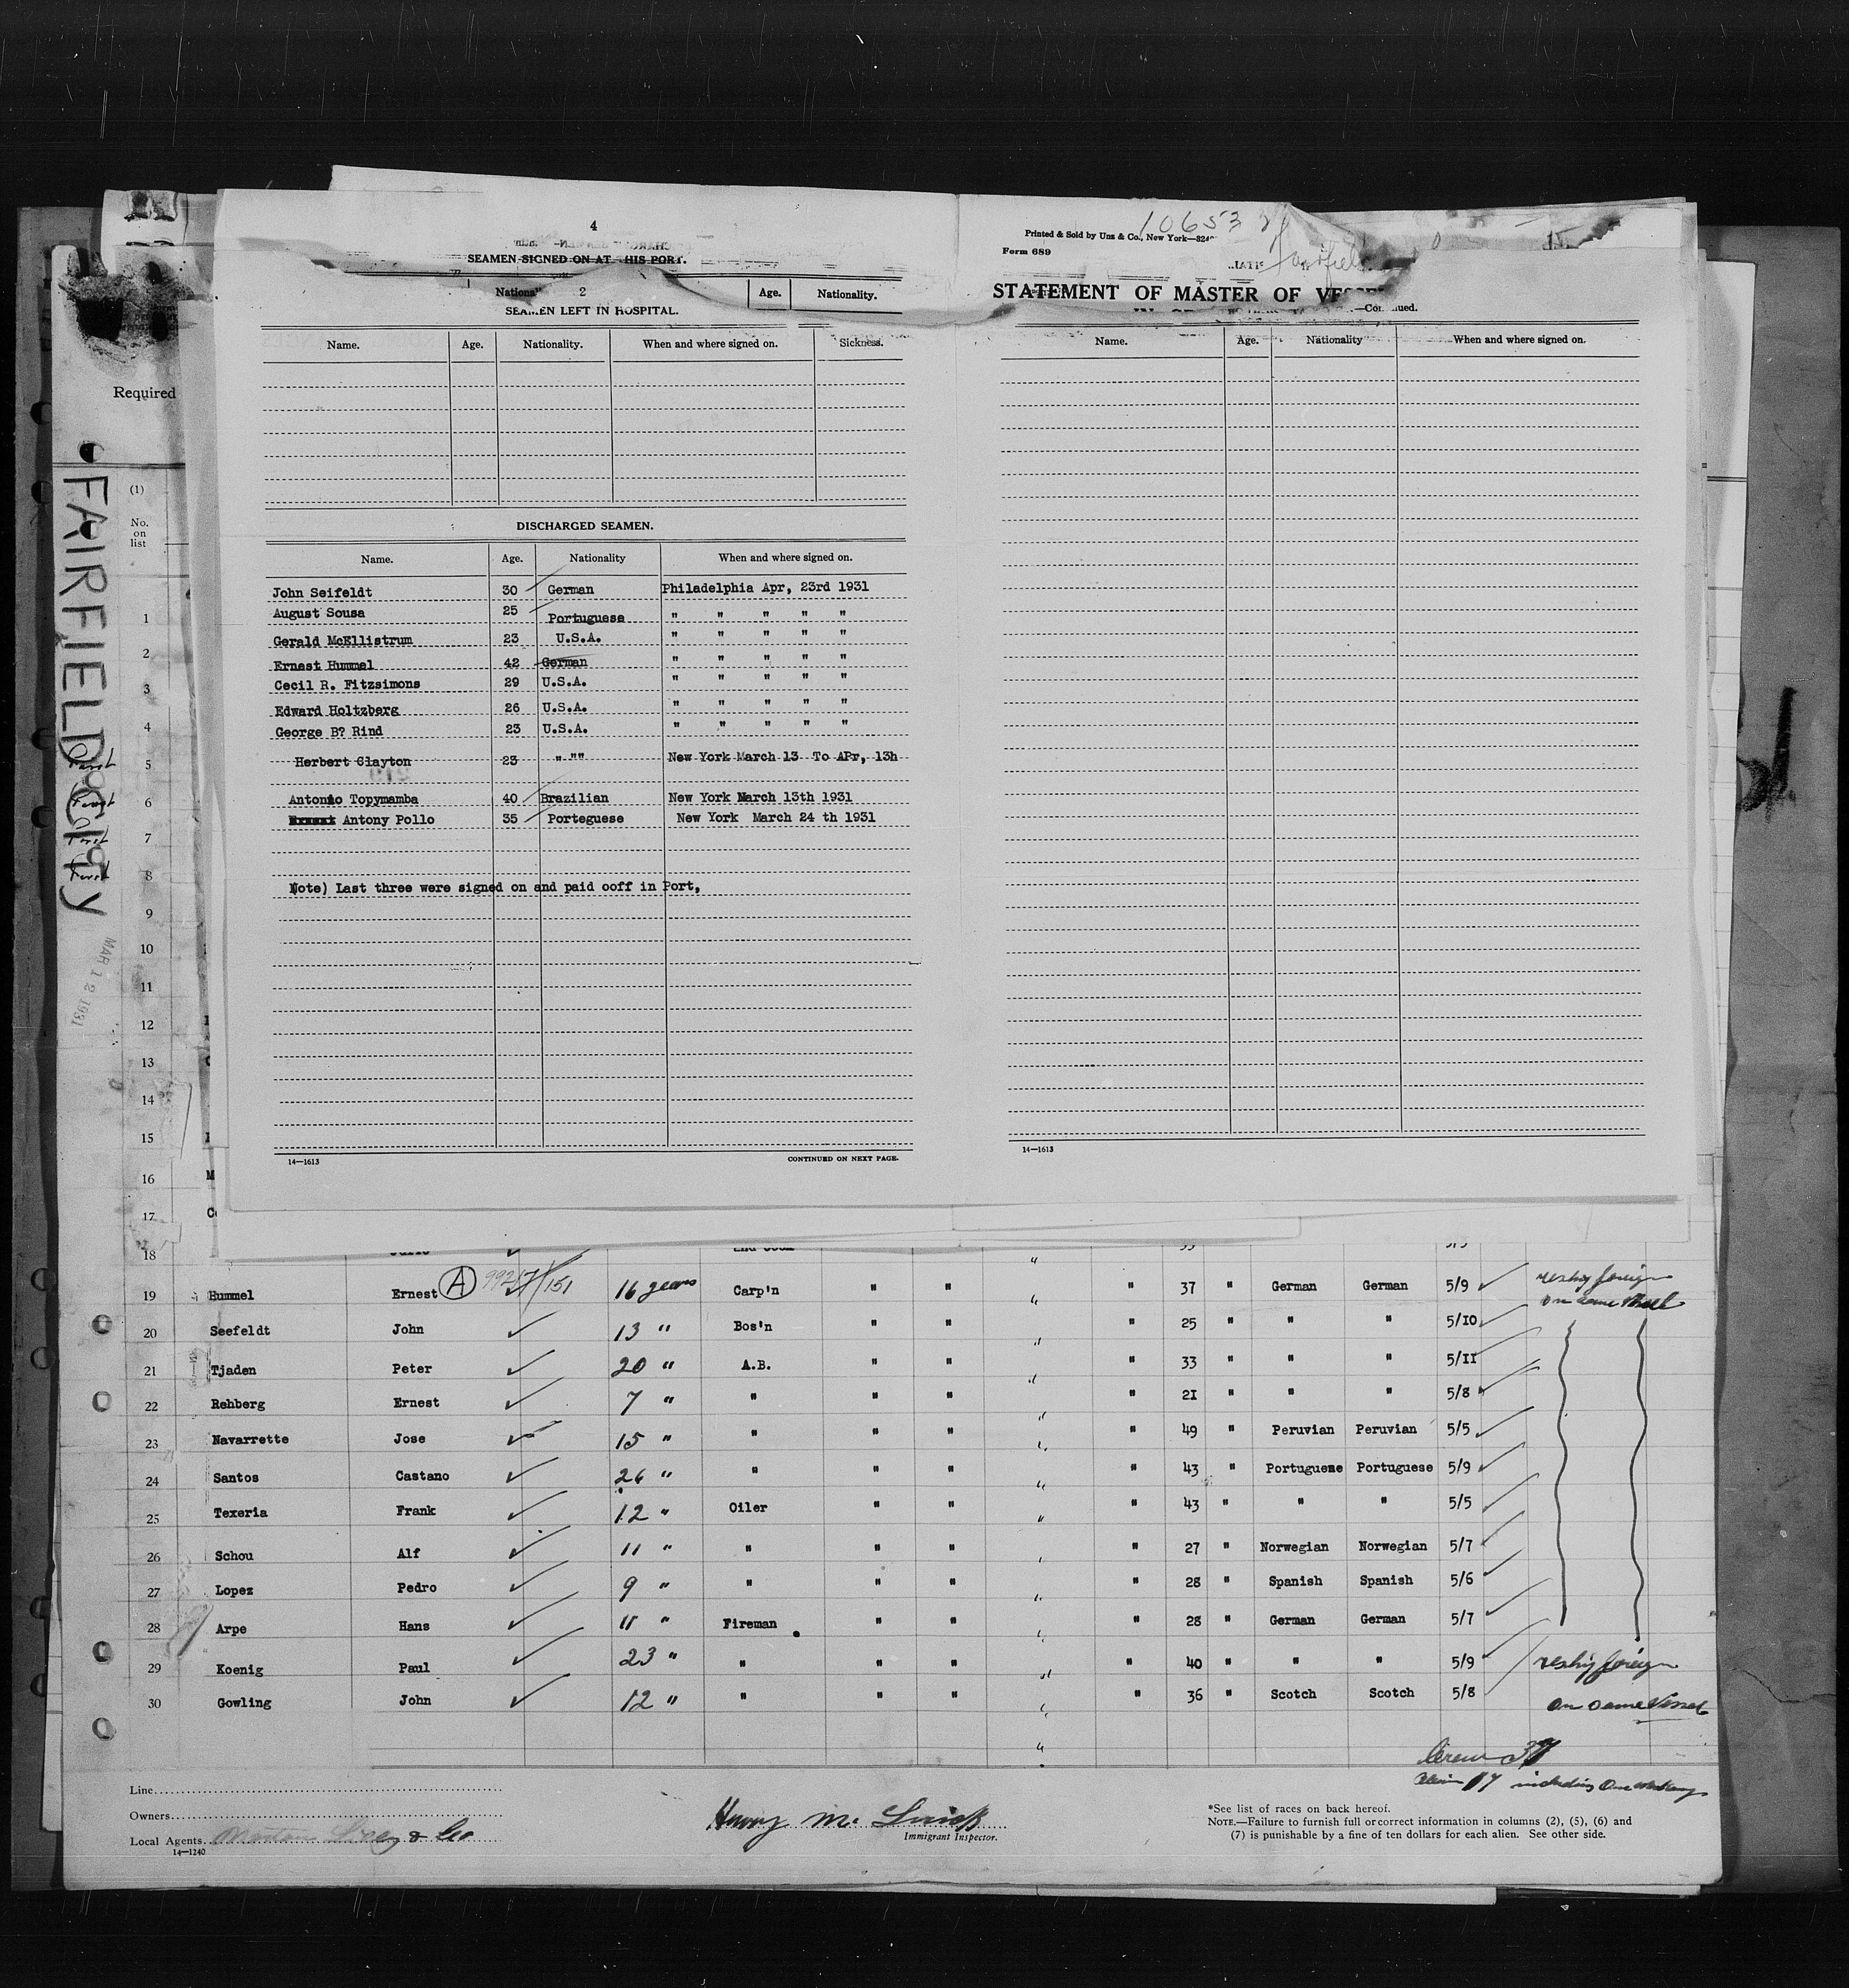 4
SEAMEN SIGNED ON AT THIS PORT.
Age. Nationality.
2
SEAMEN LEFT IN HOSPITAL.
Name. Age. Nationality. When and where signed on. Sickness.
DISCHARGED SEAMEN.
Name. Age. Nationality When and where signed on.
John Seifeldt 30 German Philadelphia Apr, 23rd 1931
August Sousa 25 Portuguese " " " " "
Gerald McEllistrum 23 U.S.A. " " " " "
Ernest Hummel 42 German " " " " "
Cecil R. Fitzsimons 29 U.S.A. " " " " "
Edward Holtzberg 26 U.S.A. " " " " "
George B? Rind 23 U.S.A. " " " " "
Herbert Clayton 23 " "" New York March 13 To APr, 13h
Antonio Topymamba 40 Brazilian New York March 13th 1931
Antony Pollo 35 Porteguese New York March 24 th 1931
Note) Last three were signed on and paid ooff in Port,
14—1613 CONTINUED ON NEXT PAGE.
10653
Printed & Sold by Uns & Co., New York—
Form 689
STATEMENT OF MASTER OF
Name. Age. Nationality When and where signed on.
14—1613
Required
(1)
No.
on
list
FAIRFIELD City
MAR 12 1931
1
2
3
4
First 5
First 6
First 7
First 8
9
10
11
12
13
14
15
16
17
18
19 Hummel Ernest A 16 years Carp'n " " " " 37 " German German 5/9 reship foreign
on same vessel
20 Seefeldt John 13 " Bos'n " " " " 25 " " " 5/10
21 Tjaden Peter 20 " A.B. " " " " 33 " " " 5/11
22 Rehberg Ernest 7 " " " " " " 21 " " " 5/8
23 Navarrette Jose 15 " " " " " " 49 " Peruvian Peruvian 5/5
24 Santos Castano 26 " " " " " " 43 " Portuguese Portuguese 5/9
25 Texeria Frank 12 " Oiler " " " " 43 " " " 5/5
26 Schou Alf 11 " " " " " " 27 " Norwegian Norwegian 5/7
27 Lopez Pedro 9 " " " " " " 28 " Spanish Spanish 5/6
28 Arpe Hans 11 " Fireman " " " " 28 " German German 5/7
29 Koenig Paul 23 " " " " " " 40 " " " 5/9 reship foreign
30 Gowling John 12 " " " " " " 36 " Scotch Scotch 5/8 on same Vessel
Crew 37
Alien 17 including One workaway
Line
Owners
Local Agents & Co
14—1240
Immigrant Inspector.
*See list of races on back hereof.
NOTE.—Failure to furnish full or correct information in columns (2), (5), (6) and
(7) is punishable by a fine of ten dollars for each alien. See other side.